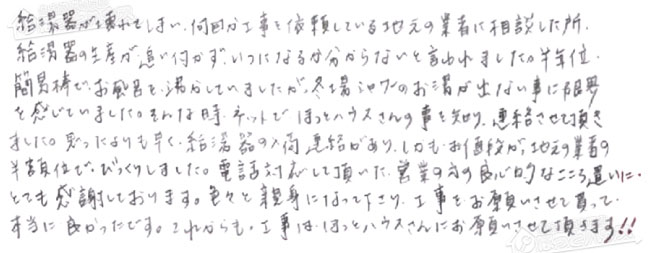 給湯器が壊れてしまい、何回か工事を依頼している地元の業者に相談した所、
給湯器の生産が追い付かず、いつになるか分からないと言われました。半年位、
簡易棒で、お風呂を沸かしていましたが、冬場シャワーのお湯が出ない事に限界
を感じていました。そんな時、ネットでほっとハウスさんの事を知り、連絡させて頂き
ました。思ったよりも早く、給湯器の入荷連絡があり、しかも、お値段が、地元の業者の
半額位で、びっくりしました。電話対応して頂いた、営業の方の良心的なこころ遣いに、
とても感謝しております。色々と親身になって下さり、工事をお願いさせて貰って、
本当に良かったです。これからも、工事は、ほっとハウスさんにお願いさせて頂きます!!